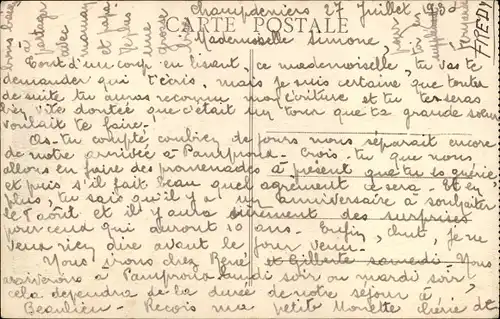 CARTE POSTALE
Champdeniers 27 Juillet 1930
Mademoiselle Simone,
Tout d'un coup en lisant, ce mademoiselle, tu vas te
demander qui t'écris, mais je suis certaine que toute
de suite tu auras reconnu mon écriture et tu te seras
bien vite doutée que c'était un tour que ta grande soeur
voulait te faire.
As-tu compté combien de jours nous séparait encore
de notre arrivée à Pamproux. Crois-tu que nous
allons en faire des promenades à présent que tu es guérie
et puis s'il fait beau quel agrément ce sera. Et en
plus, tu sais qu'il y a un anniversaire à souhaiter
le 1 août et il y aura surement des surprises
pour ceux qui auront 10 ans. Enfin, chut, je ne
veux rien dire avant le jour venu.
Nous irons chez René et Gilberte samedi. Nous
arriverons à Pamproux lundi soir ou mardi soir
cela dépendra de la durée de notre séjour à
Beaulieu. Reçois ma petite Monette chérie de
bons baisers
à partager
avec
maman
et papa.
Je plus
une
grosse
bise
pour
FREDY